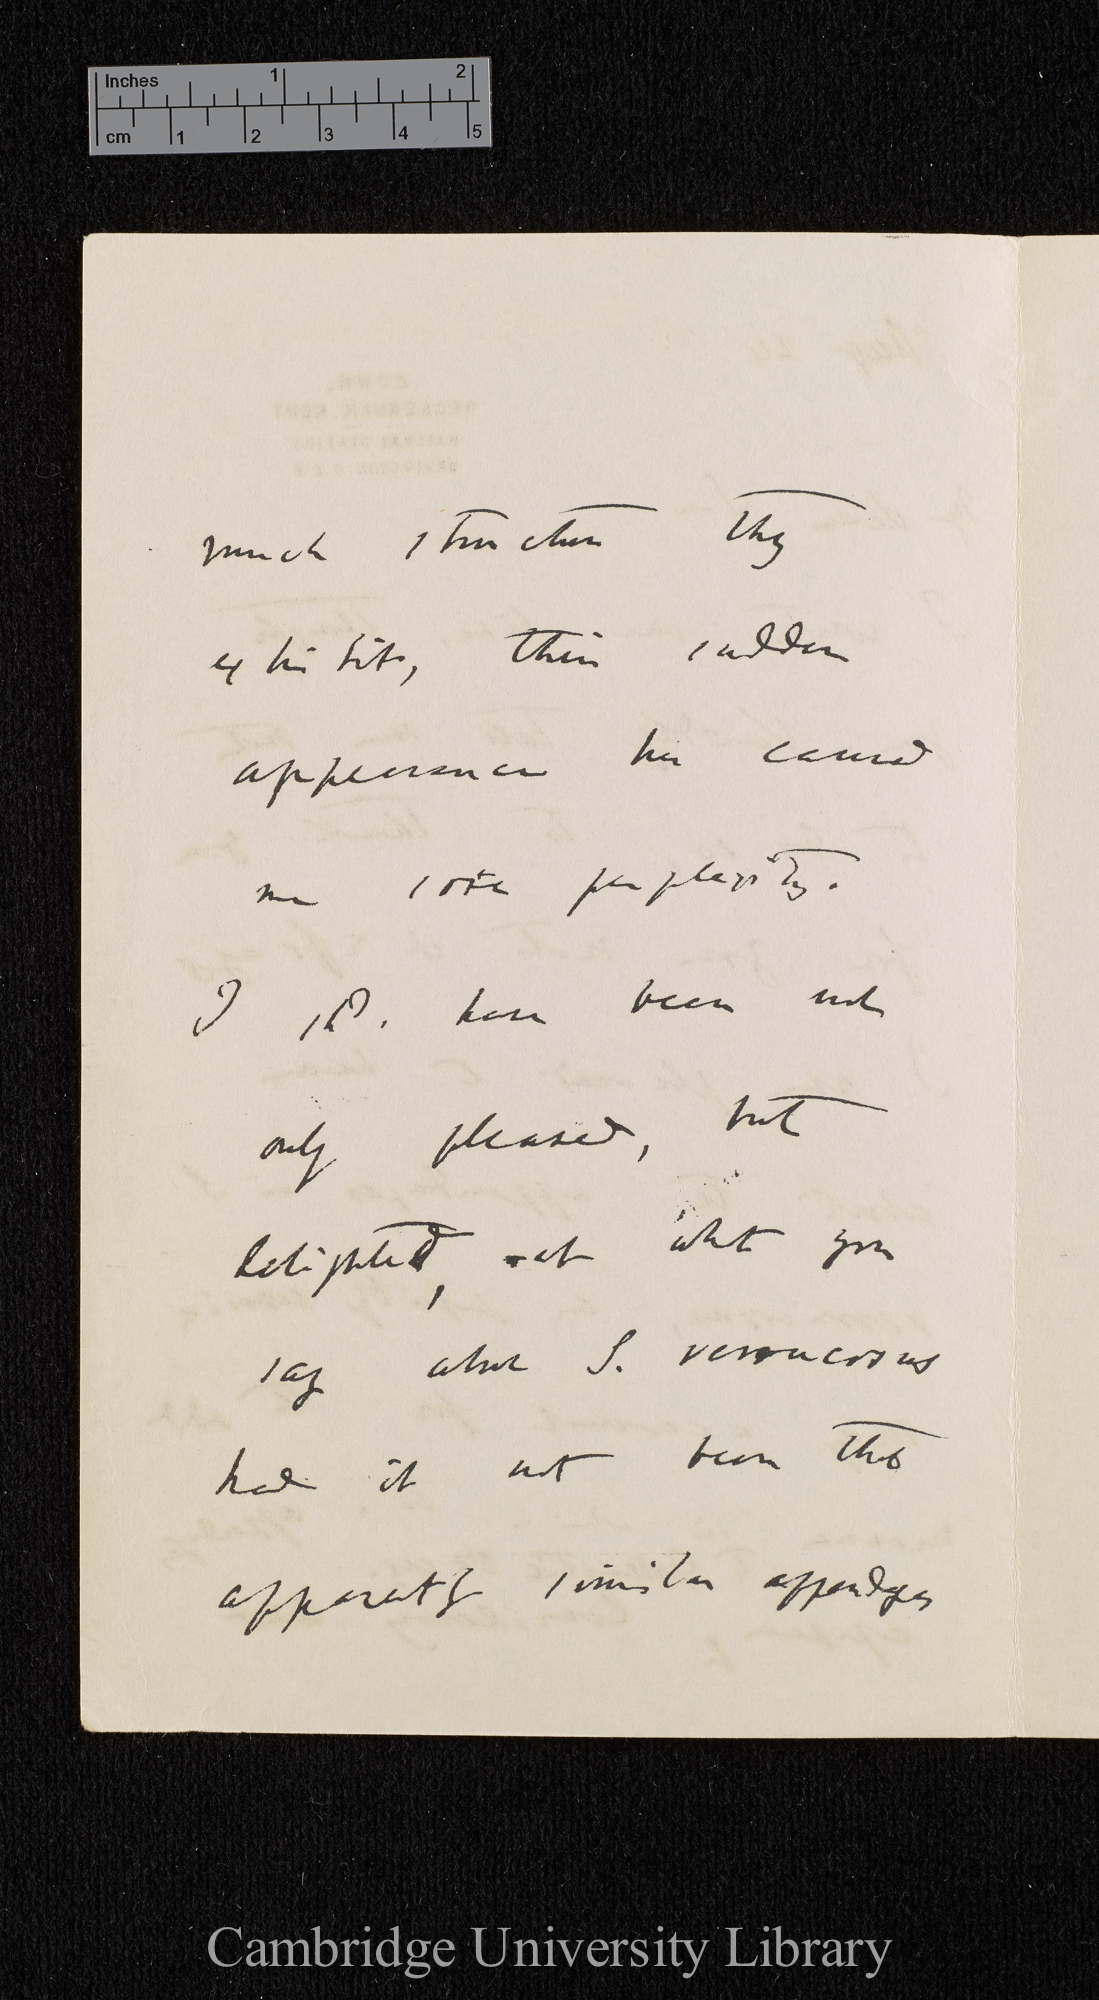 Inches 1 2
cm 1 2 3 4 5
much structure they
exhibit, their sudden
appearance has caused
me sore perplexity.
I shd. have been not
only pleased, but
delighted, at what you
say about S. verrucosus
had it not been that
apparently similar appendages
Cambridge University Library